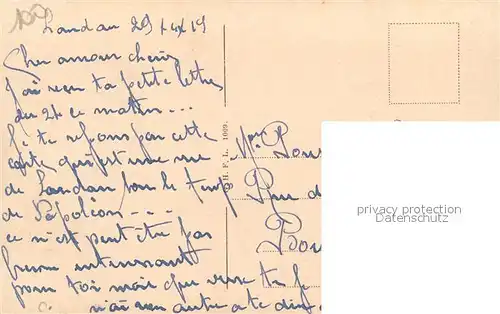 Landau 29/4/19
Cher amour chérie
J'ai reçu ta petite lettre
du 24 ce matin...
Je te répons par cette
carte qui fait une vue
de Landau sous le temps
de Napoléon....
ce n'est peut être pas
interessant
pour toi mais que veux tu je
n'ai rien autre a te dire
H. F. L. 1009.
Mr Lou
Rue d
privacy protection
Datenschutz